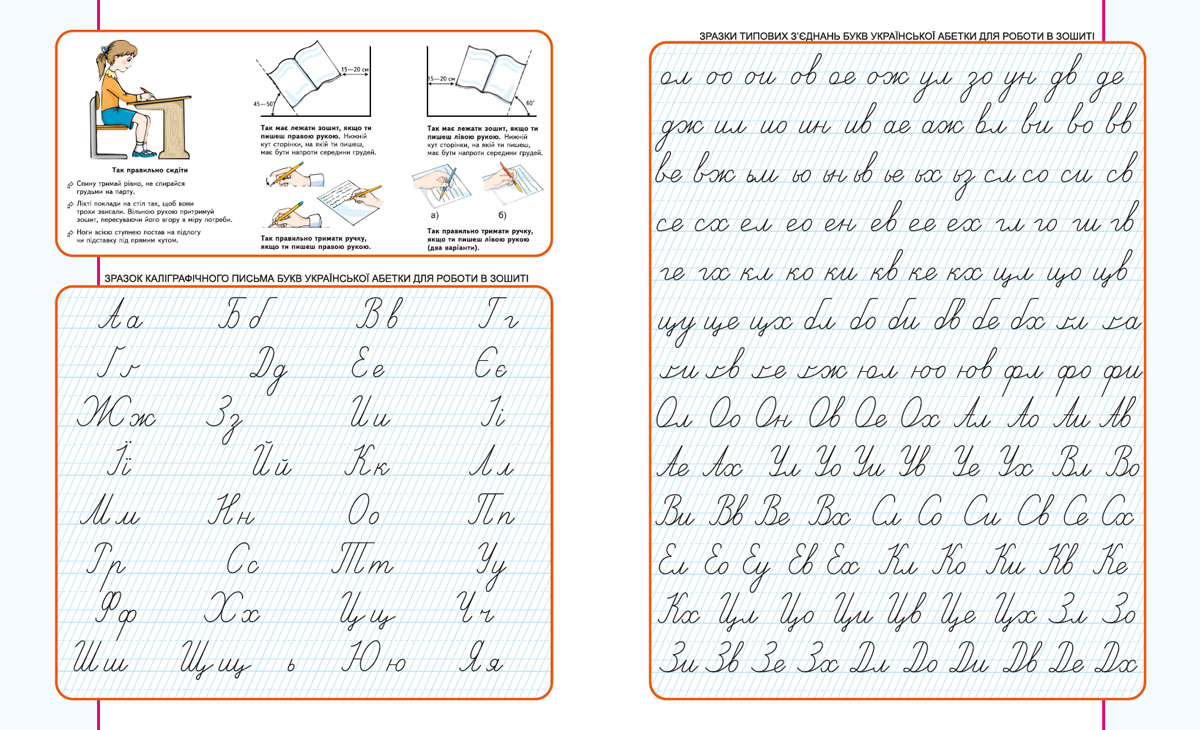 Так правильно сидіти
Спину тримай рівно, не спирайся
грудьми на парту.
Лікті поклади на стіл так, щоб вони
трохи звисали. Вільною рукою притримуй
зошит, пересуваючи його вгору в міру потреби.
Ноги всією ступнею постав на підлогу
чи підставку під прямим кутом.
15—20 см
45—50°
Так має лежати зошит, якщо ти
пишеш правою рукою. Нижній
кут сторінки, на якій ти пишеш,
має бути напроти середини грудей.
Так правильно тримати ручку,
якщо ти пишеш правою рукою.
15—20 см
60°
Так має лежати зошит, якщо ти
пишеш лівою рукою. Нижній
кут сторінки, на якій ти пишеш,
має бути напроти середини грудей.
а) б)
Так правильно тримати ручку,
якщо ти пишеш лівою рукою
(два варіанти).
ЗРАЗОК КАЛІГРАФІЧНОГО ПИСЬМА БУКВ УКРАЇНСЬКОЇ АБЕТКИ ДЛЯ РОБОТИ В ЗОШИТІ
Аа Бб Вв Гг
Ґґ Дд Ее Єє
Жж Зз Ии Іі
Її Йй Кк Лл
Мм Нн Оо Пп
Рр Сс Тт Уу
Фф Хх Цц Чч
Шш Щщ ь Юю Яя
ЗРАЗКИ ТИПОВИХ З'ЄДНАНЬ БУКВ УКРАЇНСЬКОЇ АБЕТКИ ДЛЯ РОБОТИ В ЗОШИТІ
ол оо ои ов ое ож ул зо ун дв де
дж ил ио ин ив ае аж вл ви во вв
ве вж ьм ьо ьн ьв ье ьх ьз сл со си св
се сх ел ео ен ев ее ех гл го ги гв
ге гх кл ко ки кв ке кх щл що щв
щу ще щх бл бо би бв бе бх ґл ґа
ґи ґв ґе ґж юл юо юв фл фо фи
Ол Оо Он Ов Ое Ох Ал Ао Аи Ав
Ае Ах Ул Уо Уи Ув Уе Ух Вл Во
Ви Вв Ве Вх Сл Со Си Св Се Сх
Ел Ео Еу Ев Ех Кл Ко Ки Кв Ке
Кх Цл Цо Ци Цв Це Цх Зл Зо
Зи Зв Зе Зх Дл До Ди Дв Де Дх